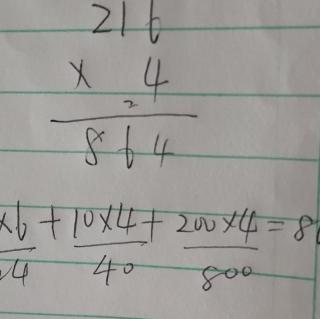 216
× 4
2
864
×6 + 10×4 + 200×4 = 8
24 40 800